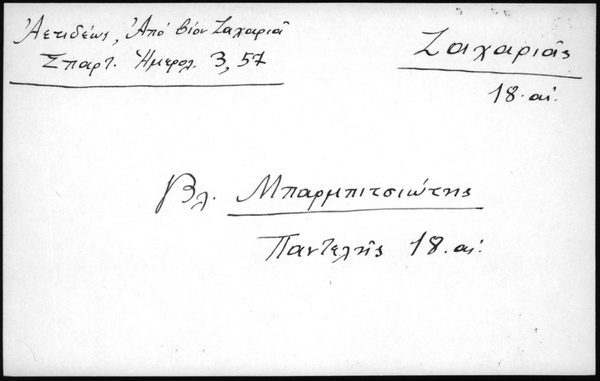 Ἀετιδέως, Ἀπό βίον Ζαχαριᾶ
Σπαρτ. Ἡμερολ. 3, 57
Ζαχαριᾶς
18. αἰ.
Βλ. Μπαρμπιτσιώτης
Παντελῆς 18. αἰ.